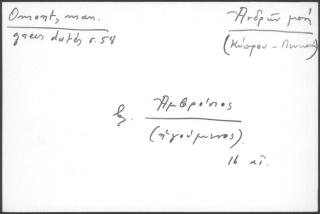 Omont, man.
grecs datés s. 58
Ἀνδρῶν μονή
(Κύπρου -
Ἀμβρόσιος
(ἡγούμενος).
16 αἰ.